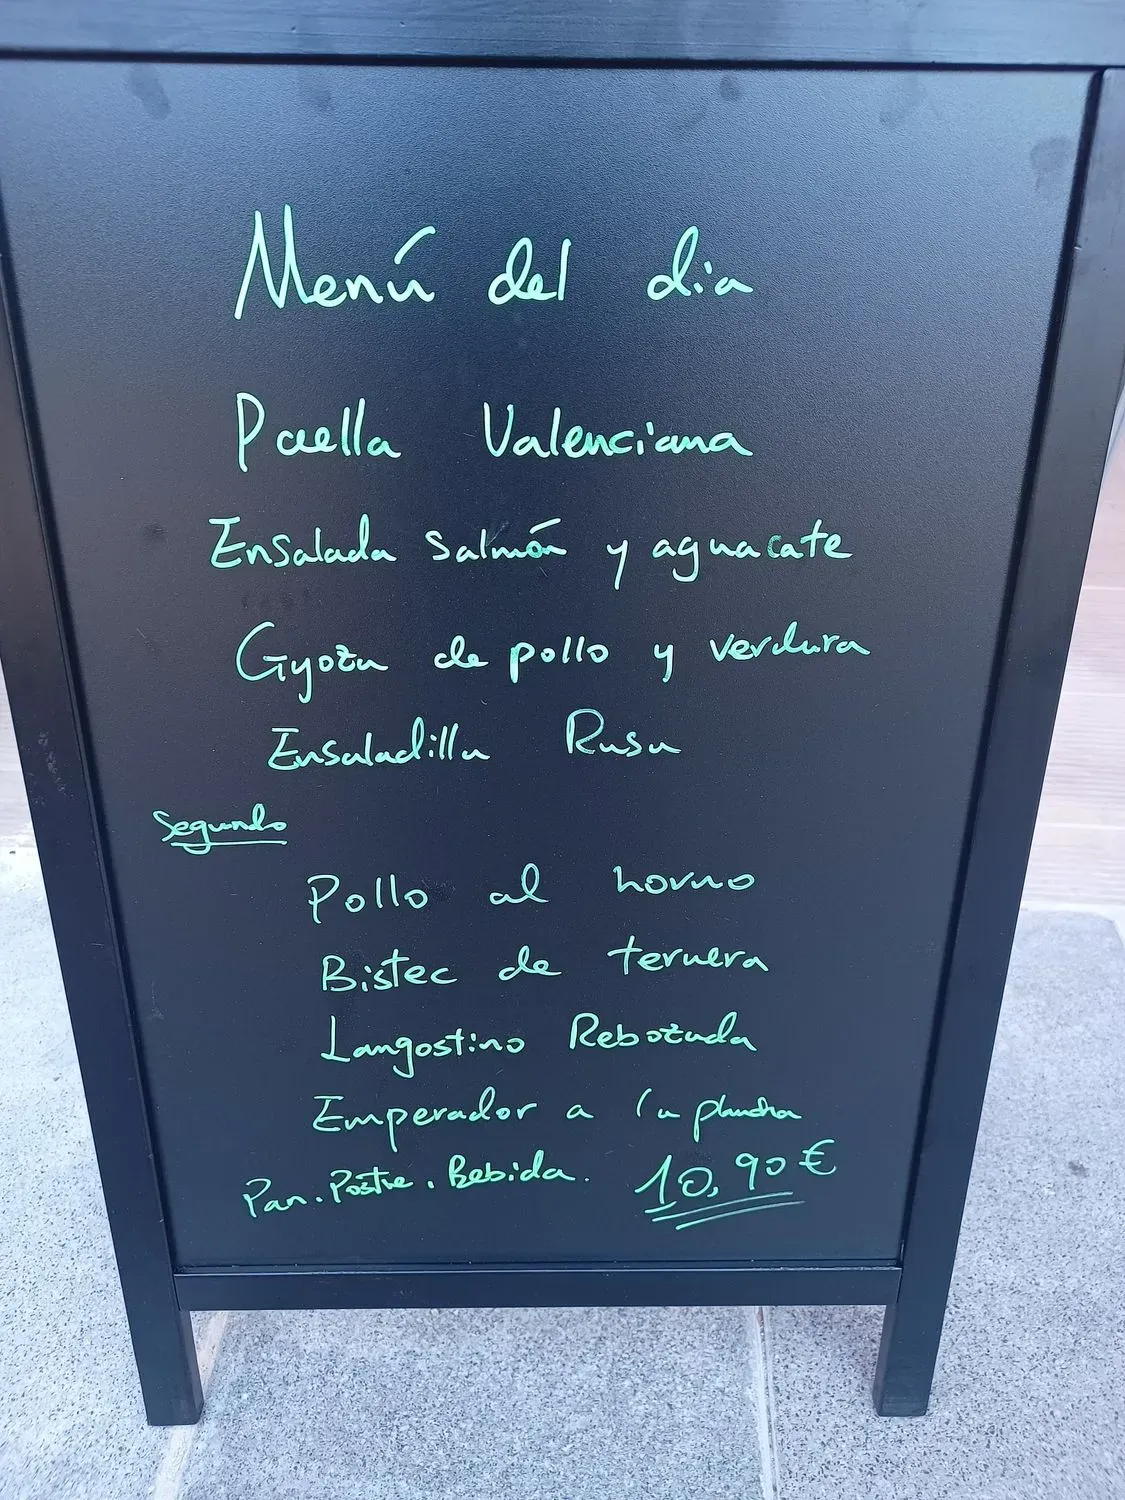 Menú del dia
Paella Valenciana
Ensalada salmón y aguacate
Gyoza de pollo y verdura
Ensaladilla Rusa
Segundo
Pollo al horno
Bistec de ternera
Langostino Rebozada
Emperador a la plancha
Pan. Postre. Bebida. 10,90€